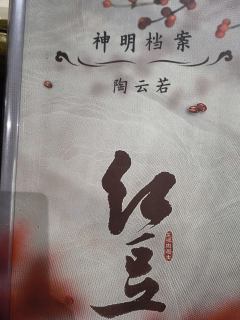 神明档案
陶云若
红豆